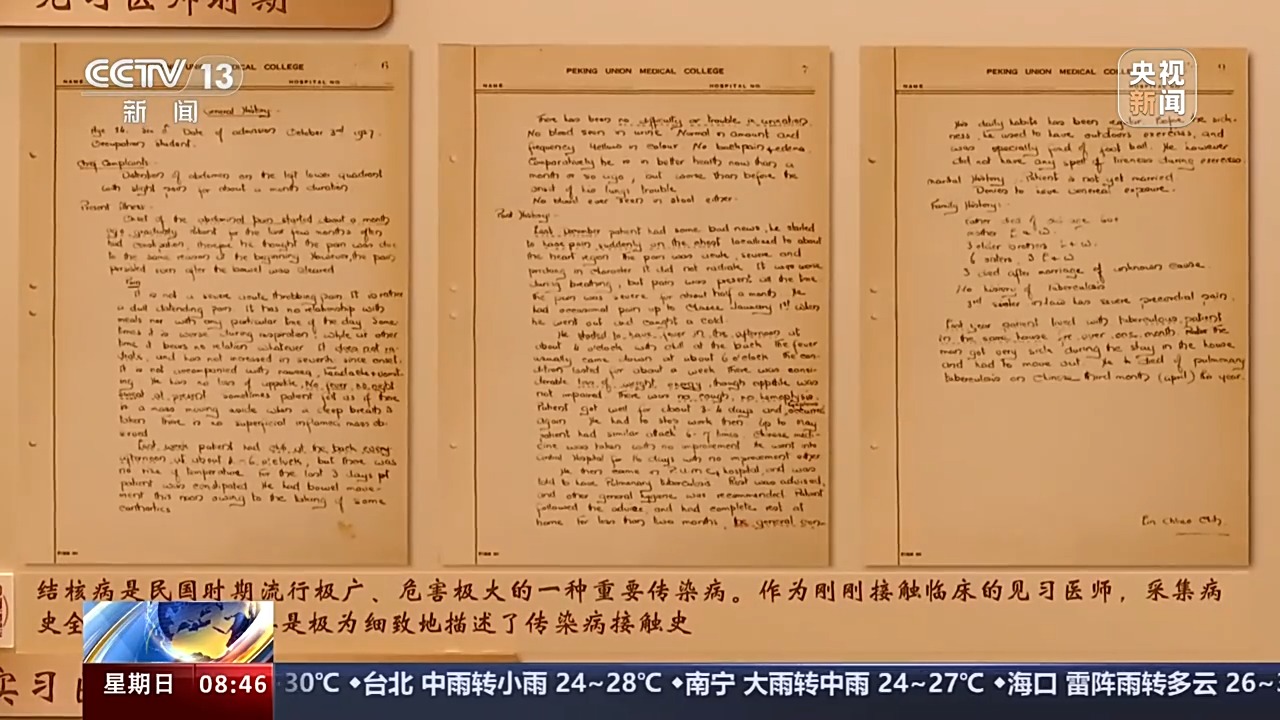 见习医师时期
CCTV 13
新闻
央视
新闻
MEDICAL COLLEGE
6
NAME
HOSPITAL NO
General History
Age 26. Sex Date of admission October 3rd 1927.
Occupation Student.
Chief Complaints
Distention of abdomen on the left lower quadrant
with slight pain for about a month duration.
Present Illness
Onset of the abdominal pain started about a month
ago, gradually for the last few months often
had constipation, therefore he thought the pain was due
to the same reason at the beginning However, the pain
persisted even after the bowel was cleared
Pain
It is not a severe acute throbbing pain. It is rather
a dull distending pain. It has no relationship with
meals nor with any particular time of the day Some
times it is worse during respiration while at other
time it bears no relation whatever It does not
and has not increased in severity since onset.
It is not accompanied with nausea, headache + vomit-
ing. He has no loss of appetite. No fever, no
at present sometimes patient felt as if there
is a mass moving aside when a deep breath is
taken There is no superficial inflamed mass ob-
served
Last week patient had chill at the back every
afternoon at about 4-6 o'clock, but there was
no rise of temperature For the last 3 days pt
patient was constipated He had bowel move-
ment this noon owing to the taking of some
cathartics
PEKING UNION MEDICAL COLLEGE
7
NAME
HOSPITAL NO
There has been no difficulty or trouble in urination.
No blood seen in urine Normal in amount and
frequency Yellow in colour No backpain + edema
Comparatively he is in better health now than a
month or so ago, but worse than before the
onset of his lungs trouble
No blood ever seen in stool either.
Past History
Last December patient had some bad news, he started
to have pain suddenly on the chest localized to about
the heart region The pain was acute, severe and
pricking in character It did not radiate It was worse
during breathing, but pain was present all the time
The pain was severe for about half a month. He
had occasional pain up to Chinese January 1st when
he went out and caught a cold
He started to have fever in the afternoon at
about 4 o'clock with chill at the back The fever
usually came down at about 6 o'clock The con-
dition lasted for about a week There was consi-
derable loss of weight, energy, though appetite was
not impaired There was no cough, no hemoptysis.
Patient got well for about 3-4 days and occurred
again He had to stop work then Up to May
patient had similar attack 6-7 times Chinese medi-
cine was taken with no improvement He went into
Central Hospital for 14 days with no improvement either
He then came in P.U.M.C. hospital, and was
told to have Pulmonary tuberculosis Rest was advised,
and other general hygiene was recommended Patient
followed the advice, and had complete rest at
home for less than two months, his general con-
PEKING UNION MEDICAL COLLEGE
NAME
His daily habits has been regular Before the sick-
ness, he used to have outdoors exercises, and
was especially fond of foot ball. He however
did not have any spell of tiredness during exercises
marital History Patient is not yet married.
Denies to have venereal exposure.
Family History:
Father died of
mother L + W.
3 older brothers L + W.
6 sisters, 3 L + W
3 died after marriage of unknown cause
No history of tuberculosis
3rd sister in law has severe precordial pain.
Last year patient lived with tuberculous patient
in the same house for over one month. the
man got very sick during the stay in the house
and had to move out He died of pulmonary
tuberculosis on Chinese third month (april) this year.
结核病是民国时期流行极广、危害极大的一种重要传染病。作为刚刚接触临床的见习医师，采集病
史全
是极为细致地描述了传染病接触史
实习
星期日 08:46
30℃ •台北 中雨转小雨 24~28℃ •南宁 大雨转中雨 24~27℃ •海口 雷阵雨转多云 26~3